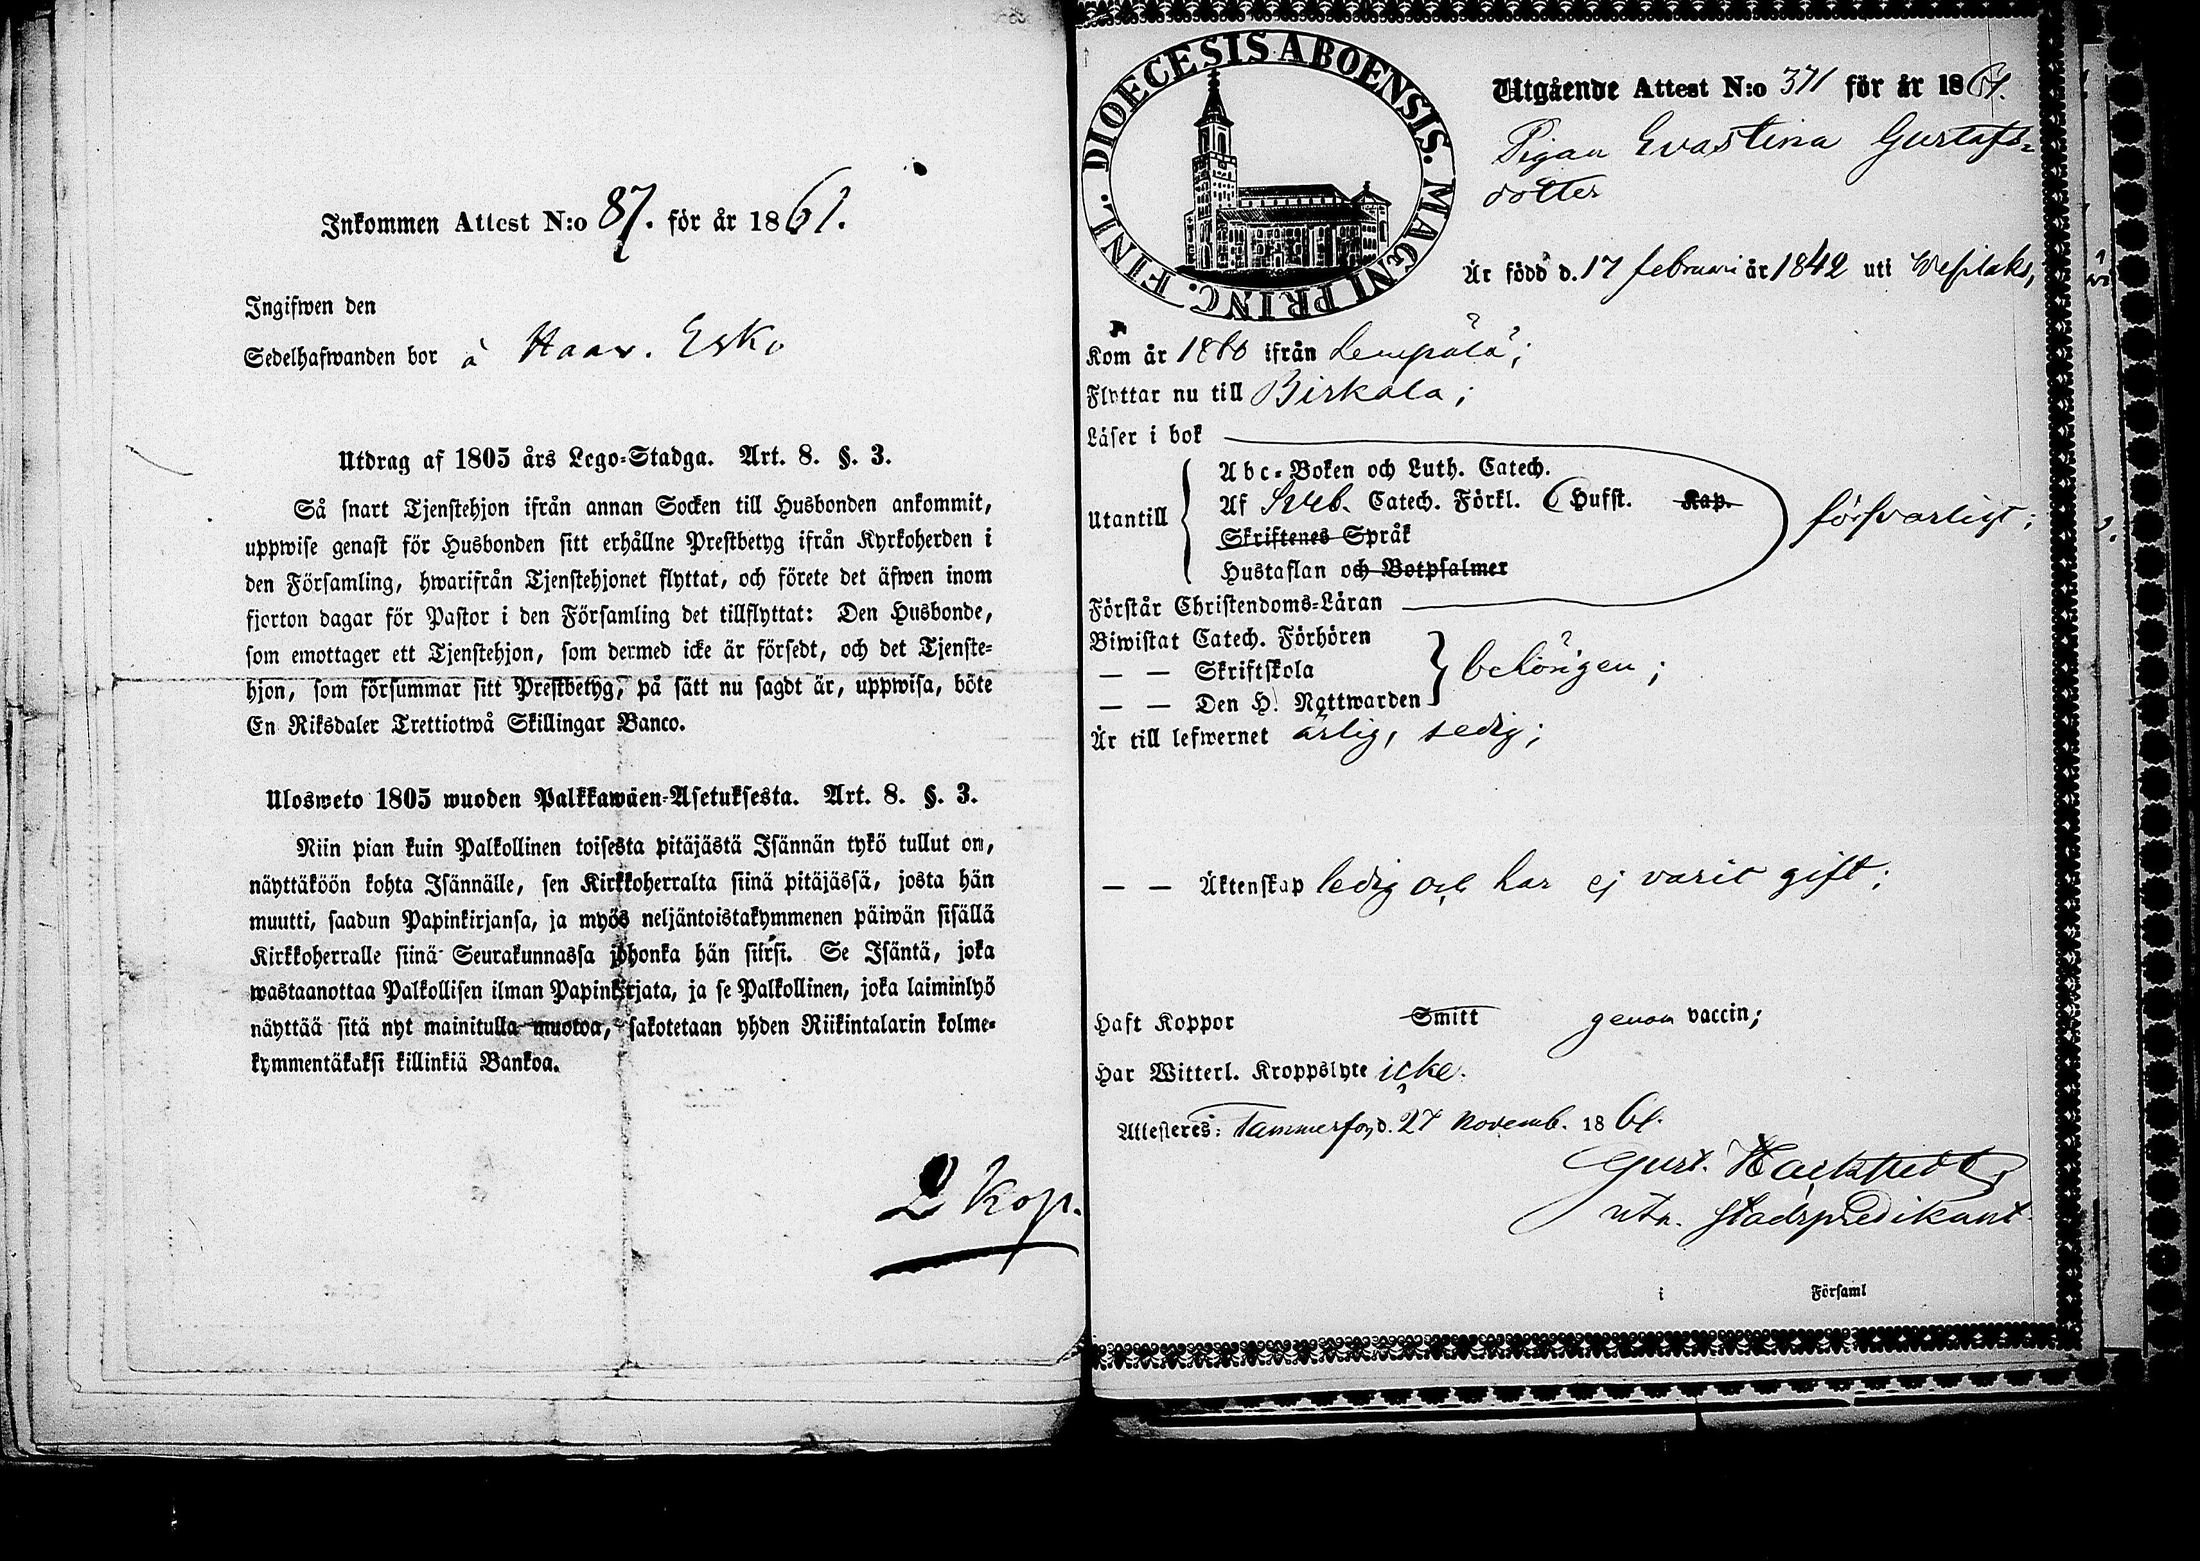 Inkommen Attest N:o 87. för år 1861.
Ingifwen den
Sedelhafwanden bor å Haav. Esko
Utdrag af 1805 års Lego-Stadga. Art. 8. §. 3.
Så snart Tjenstehjon ifrån annan Socken till Husbonden ankommit,
uppwise genast för Husbonden sitt erhållne Prestbetyg ifrån Kyrkoherden i
den Församling, hwarifrån Tjenstehjonet flyttat, och förete det äfwen inom
fjorton dagar för Pastor i den Församling det tillflyttat: Den Husbonde,
som emottager ett Tjenstehjon, som dermed icke är försedt, och det Tjenste-
hjon, som försummar sitt Prestbetyg, på sätt nu sagdt är, uppwisa, böte
En Riksdaler Trettiotwå Skillingar Banco.
Ulosweto 1805 wuoden Palkkawäen-Asetuksesta. Art. 8. §. 3.
Niin pian kuin Palkollinen toisesta pitäjästä Isännän tykö tullut on,
näyttäköön kohta Isännälle, sen Kirkkoherralta siinä pitäjässä, josta hän
muutti, saadun Papinkirjansa, ja myös neljäntoistakymmenen päiwän sisällä
Kirkkoherralle siinä Seurakunnassa johonka hän siirsi. Se Isäntä, joka
wastaanottaa Palkollisen ilman Papinkirjata, ja se Palkollinen, joka laiminlyö
näyttää sitä nyt mainitulla muotoa, sakotetaan yhden Riikintalarin kolme-
kymmentäkaksi killinkiä Bankoa.
2 kop.
DIOECESIS ABOENSIS. MAGNI PRINC. FINL.
Utgående Attest N:o 371 för år 1861.
Pigan Evastina Gustafs-
dotter
Är född d. 17 februari år 1842 uti Wesilaks,
Kom år 1860 ifrån Lempälä;
Flyttar nu till Birkala;
Läser i bok
Abc-Boken och Luth. Catech.
Utantill Af Sveb. Catech. Förkl. Husst. Kap. försvarligt;
Skriftenes Språk
Hustaflan och Botpsalmer
Förstår Christendoms-Läran
Biwistat Catech. Förhören
— — Skriftskola behörigen;
— — Den H. Nattwarden
Är till lefwernet ärlig, sedig;
— — Äktenskap ledig och har ej varit gift;
Haft Koppor Smitt genom vaccin;
Har Witterl. Kroppslyte icke.
Attesteres: Tammerfors d. 27 Novemb. 1861.
Gust.
stadspredikant
i Församl